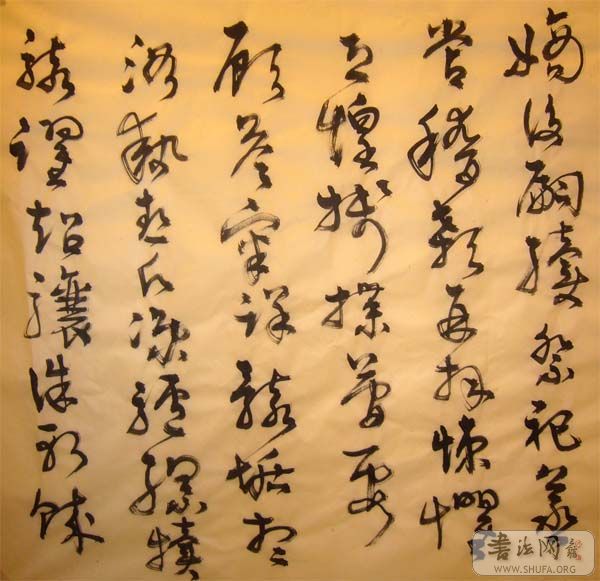 嫡後嗣續祭祀蒸
嘗稽顙再拜悚懼
恐惶牋牒簡要
顧答審詳骸垢想
浴執熱願涼驢騾犢
駭躍超驤誅斬賊
書法网
WWW.SHUFA.ORG